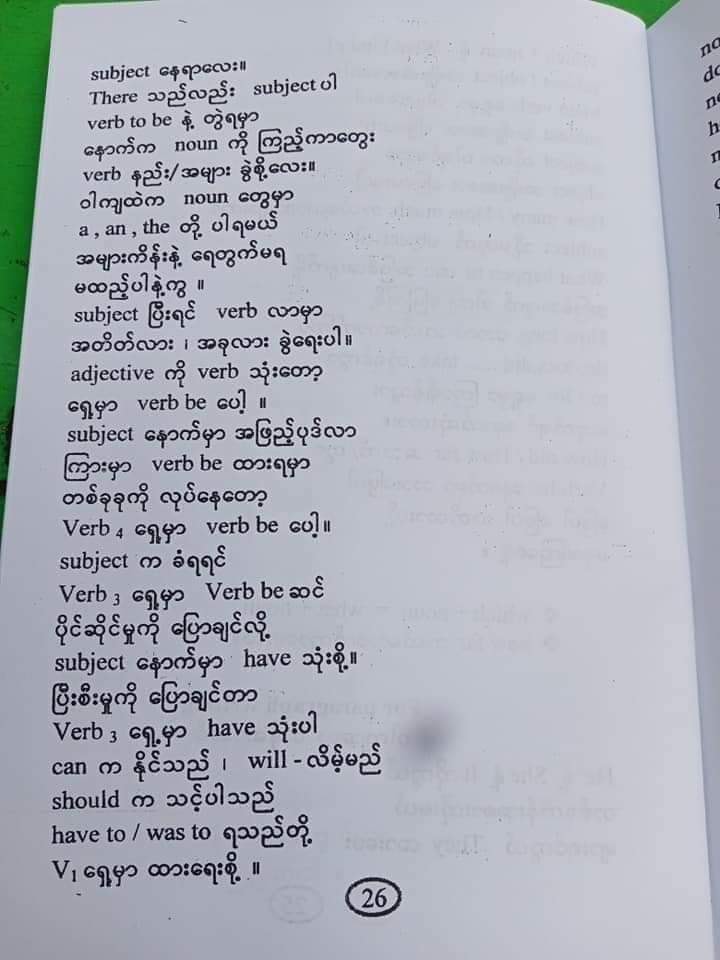 subject နေရာလေး။
There သည်လည်း subject ပါ
verb to be နဲ့ တွဲရမှာ
နောက်က noun ကို ကြည့်ကာတွေး
verb နည်း/အများ ခွဲစို့လေး။
ဝါကျထဲက noun တွေမှာ
a , an , the တို့ ပါရမယ်
အများကိန်းနဲ့ ရေတွက်မရ
မထည့်ပါနဲ့ကွ ။
subject ပြီးရင် verb လာမှာ
အတိတ်လား ၊ အခုလား ခွဲရေးပါ။
adjective ကို verb သုံးတော့
ရှေ့မှာ verb be ပေါ့ ။
subject နောက်မှာ အဖြည့်ပုဒ်လာ
ကြားမှာ verb be ထားရမှာ
တစ်ခုခုကို လုပ်နေတော့
Verb 4 ရှေ့မှာ verb be ပေါ့။
subject က ခံရရင်
Verb 3 ရှေ့မှာ Verb be ဆင်
ပိုင်ဆိုင်မှုကို ပြောချင်လို့
subject နောက်မှာ have သုံးစို့။
ပြီးစီးမှုကို ပြောချင်တာ
Verb 3 ရှေ့မှာ have သုံးပါ
can က နိုင်သည် ၊ will - လိမ့်မည်
should က သင့်ပါသည်
have to / was to ရသည်တို့
V1 ရှေ့မှာ ထားရေးစို့ ။
26